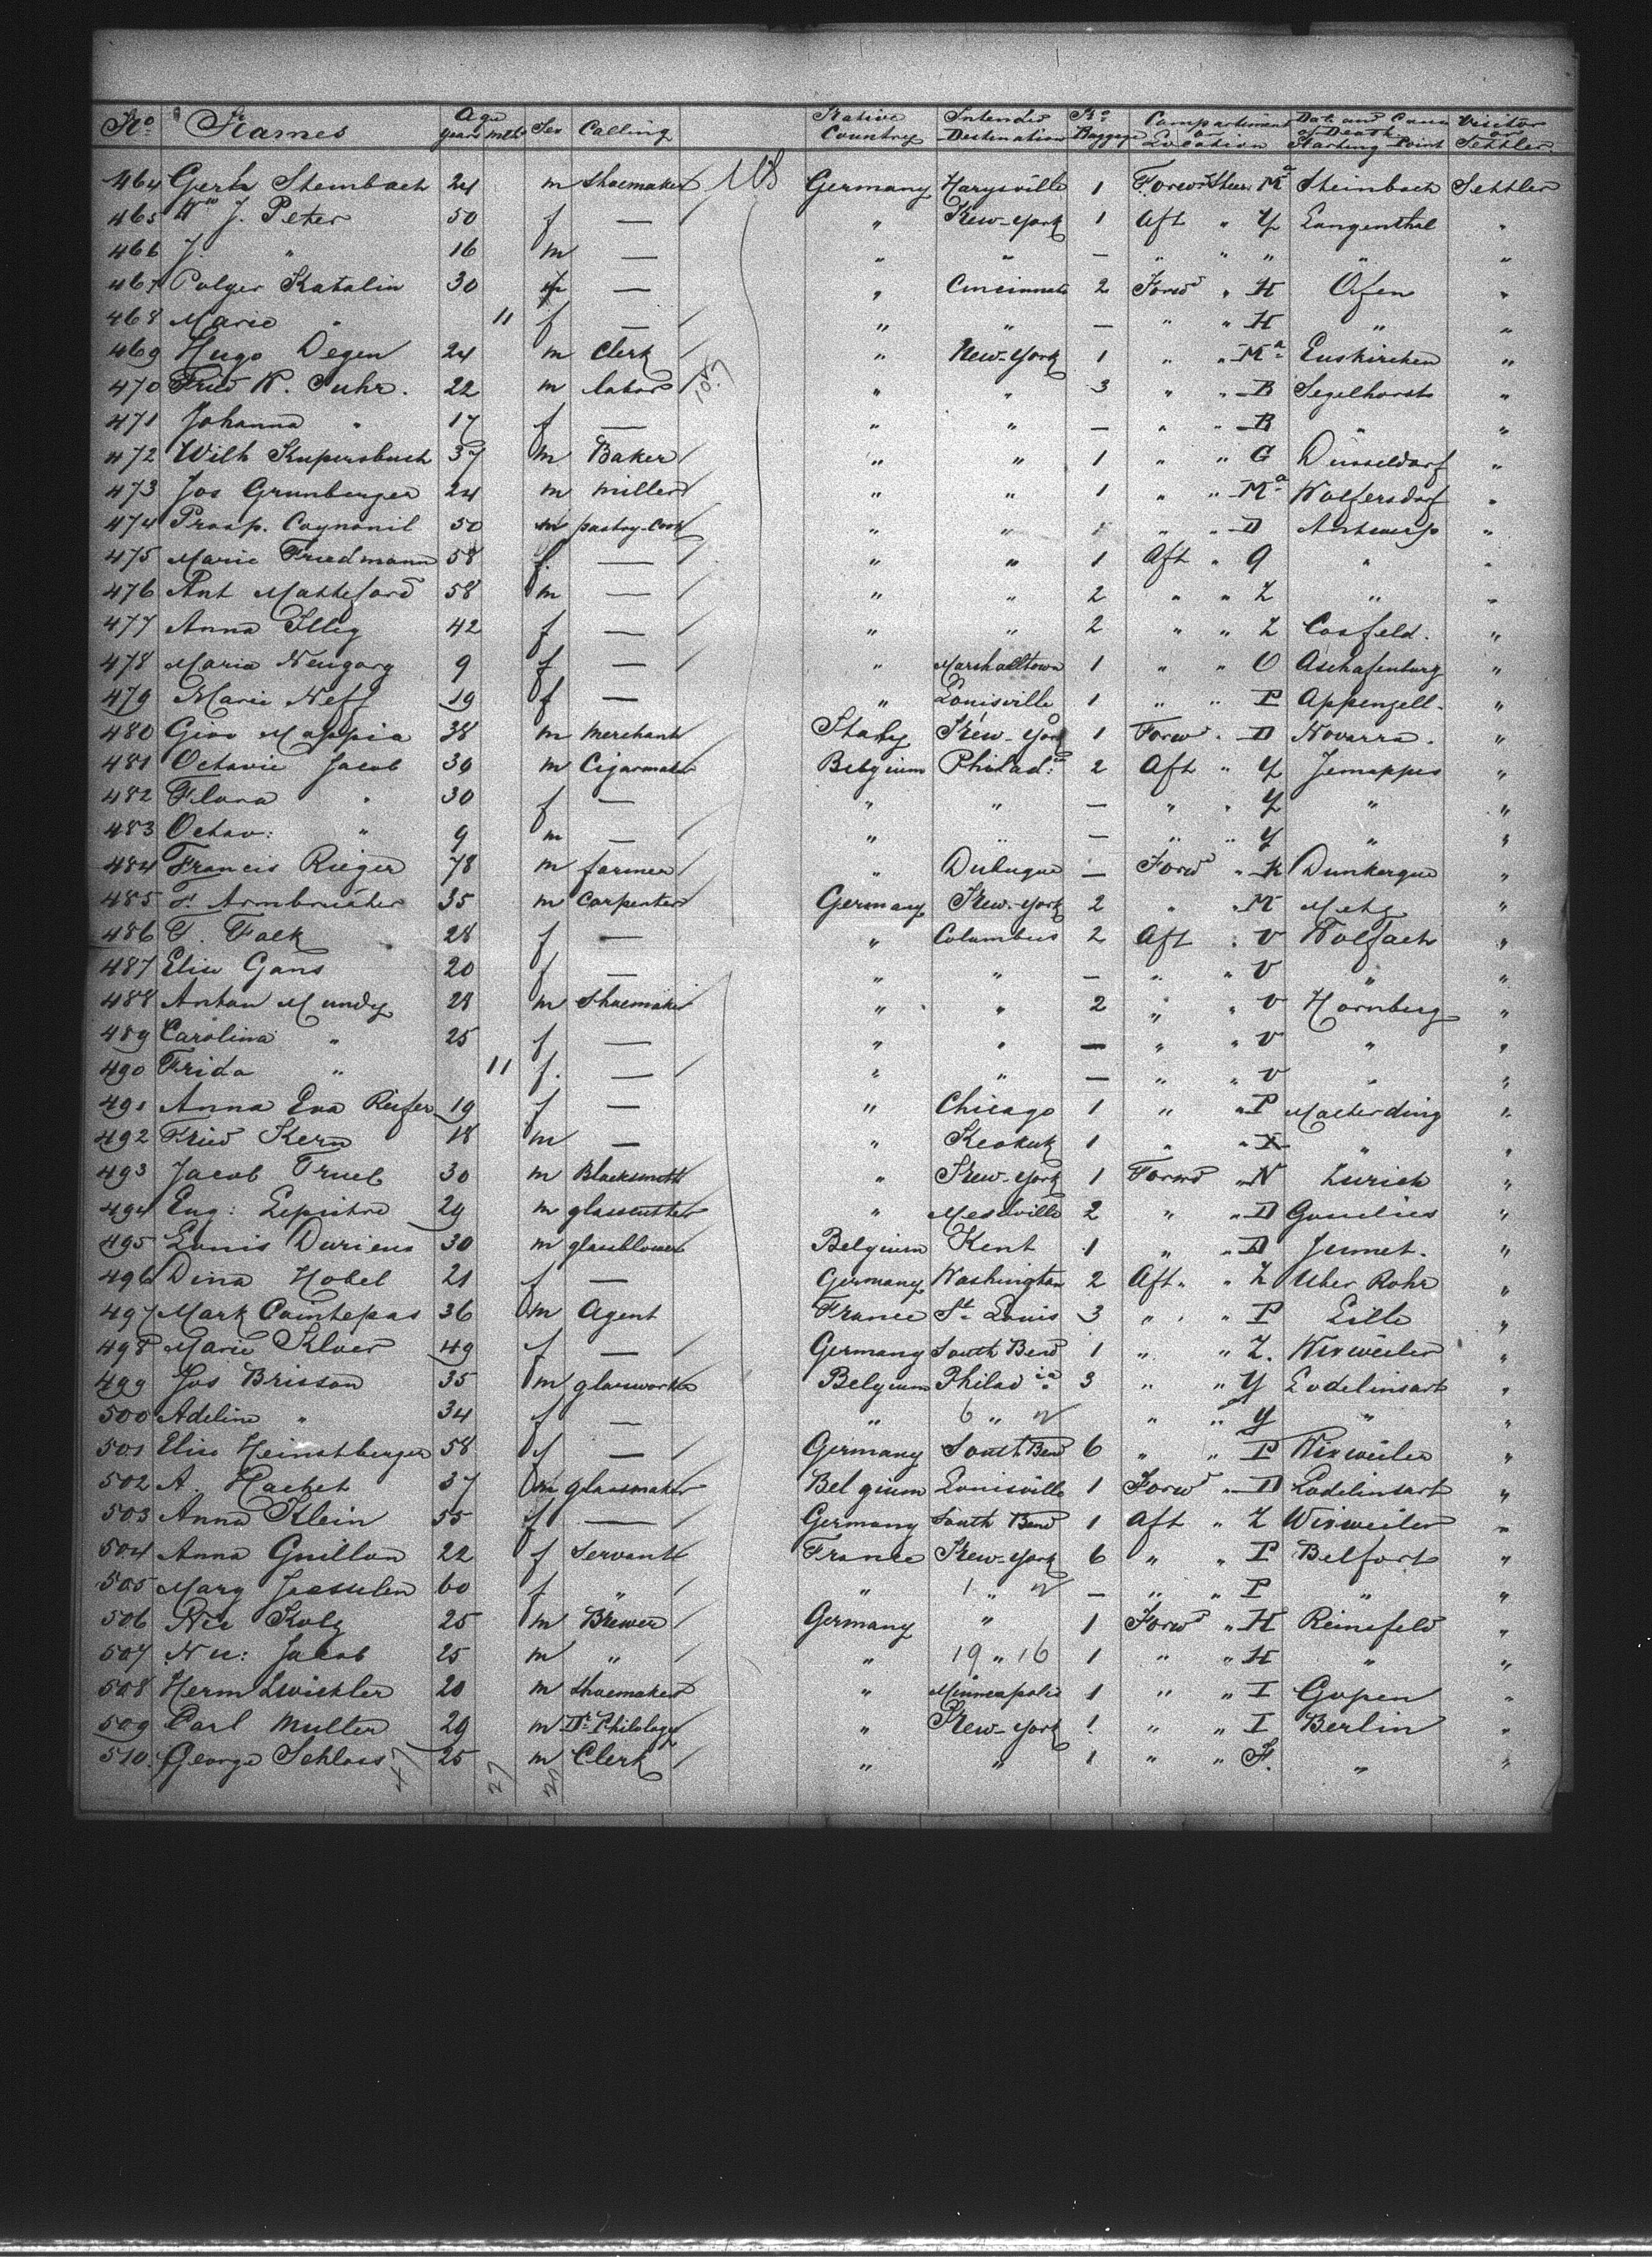 No Names Age years mths Sex Calling Native Country Intended Destination No Baggage Compartment or Location Date and Cause of Death Starting Point Visitor or Settler
464 Gerh Steinbach 24 m Shoemaker 108 Germany Marysville 1 Forwd Steer Ma Steinbach Settler
465 Wm J. Peter 50 f — " New-York 1 Aft " Y Langenthal "
466 J. " 16 m — " " — " " " " "
467 Polger Katalin 30 f — " Cincinnati 2 Forwd " H Ofen "
468 Marie " 11 f — " " — " " H " "
469 Hugo Degen 24 m Clerk " New-York 1 " " Ma Euskirchen "
470 Fried W. Suhr. 22 m labor " " 3 " " B Segelhorst "
471 Johanna " 17 f — " " — " " B " "
472 Wilh Kupersbusch 37 m Baker " " 1 " " G Düsseldorf "
473 Jos Grunberger 24 m miller " " 1 " " Ma Wolfersdorf "
474 Prosp. Coynonil 50 m pastry-Cook " " 1 " " D Antwerp "
475 Marie Friedmann 58 f. — " " 1 Aft " Q " "
476 Ant Matteford 58 m — " " 2 " " Z " "
477 Anna Illig 42 f — " " 2 " " Z Cosfeld. "
478 Maria Neugarg 9 f — " Marshalltown 1 " " O Aschafenburg "
479 Marie Neff 19 f — " Louisville 1 " " P Appenzell. "
480 Giov Mappia 38 m merchant Italy New-York 1 Forwd " D Novarra. "
481 Octavie Jacob 39 m Cigarmaker Belgium Philada 2 Aft " Y Jemappes "
482 Flora " 30 f — " " — " " Y " "
483 Octav: " 9 m — " " — " " Y " "
484 Francis Rieger 78 m farmer " Dubuque — Forwd " K Dunkerque "
485 F. Armbruster 35 m Carpenter Germany New-York 2 " " M Metz "
486 T. Falk 28 f — " Columbus 2 Aft " V Wolfach "
487 Elise Gans 20 f — " " — " " V " "
488 Anton Mundy 28 m Shoemaker " " 2 " " V Hornberg "
489 Carolina " 25 f — " " — " " V " "
490 Frida " 11 f. — " " — " " V " "
491 Anna Eva Riefer 19 f — " Chicago 1 " " P Malterding "
492 Fried Kern 18 m — " Keokuk 1 " " X " "
493 Jacob Trueb 30 m Blacksmith " New-York 1 Forwd " N Zurich "
494 Eug: Lepistre 29 m glasscutter " 2 " " D Gouilies "
495 Louis Dariens 30 m glassblower Belgium Kent 1 " " D Jumet. "
496 Dina Hobel 21 f — Germany Washington 2 Aft " " Z Uber Rohr "
497 Mark Cointepas 36 m Agent France St. Louis 3 " " P Lille "
498 Marie Klver 49 f — Germany South Bend 1 " " Z. Wixweiler "
499 Jos Brisson 35 m glassworker Belgium Philadia 3 " " Y Lodelinsart "
500 Adeline " 34 f — " 6 " " " Y " "
501 Elise Heinstberger 58 f — Germany South Bend 6 " " P Wixweiler "
502 A. Hachet 37 m glassmaker Belgium Louisville 1 Forwd " D Lodelinsart "
503 Anna Klein 55 f — Germany South Bend 1 Aft " Z Wixweiler "
504 Anna Guillon 22 f Servant France New-York 6 " " P Belfort "
505 Mary Josselen 60 f " " 1 " — " " P " "
506 Nic Kolz 25 m Brewer Germany " 1 Forwd " H Reinsfeld "
507 Nic: Jacob 25 m " " 19 " 16 1 " " H " "
508 Herm Zwickler 20 m Shoemaker " Minneapolis 1 " " I Gopen "
509 Carl Multer 29 m Dr Philology " New-York 1 " " I Berlin "
510. George Schloss 25 m Clerk " " 1 " " F. " "
47 27